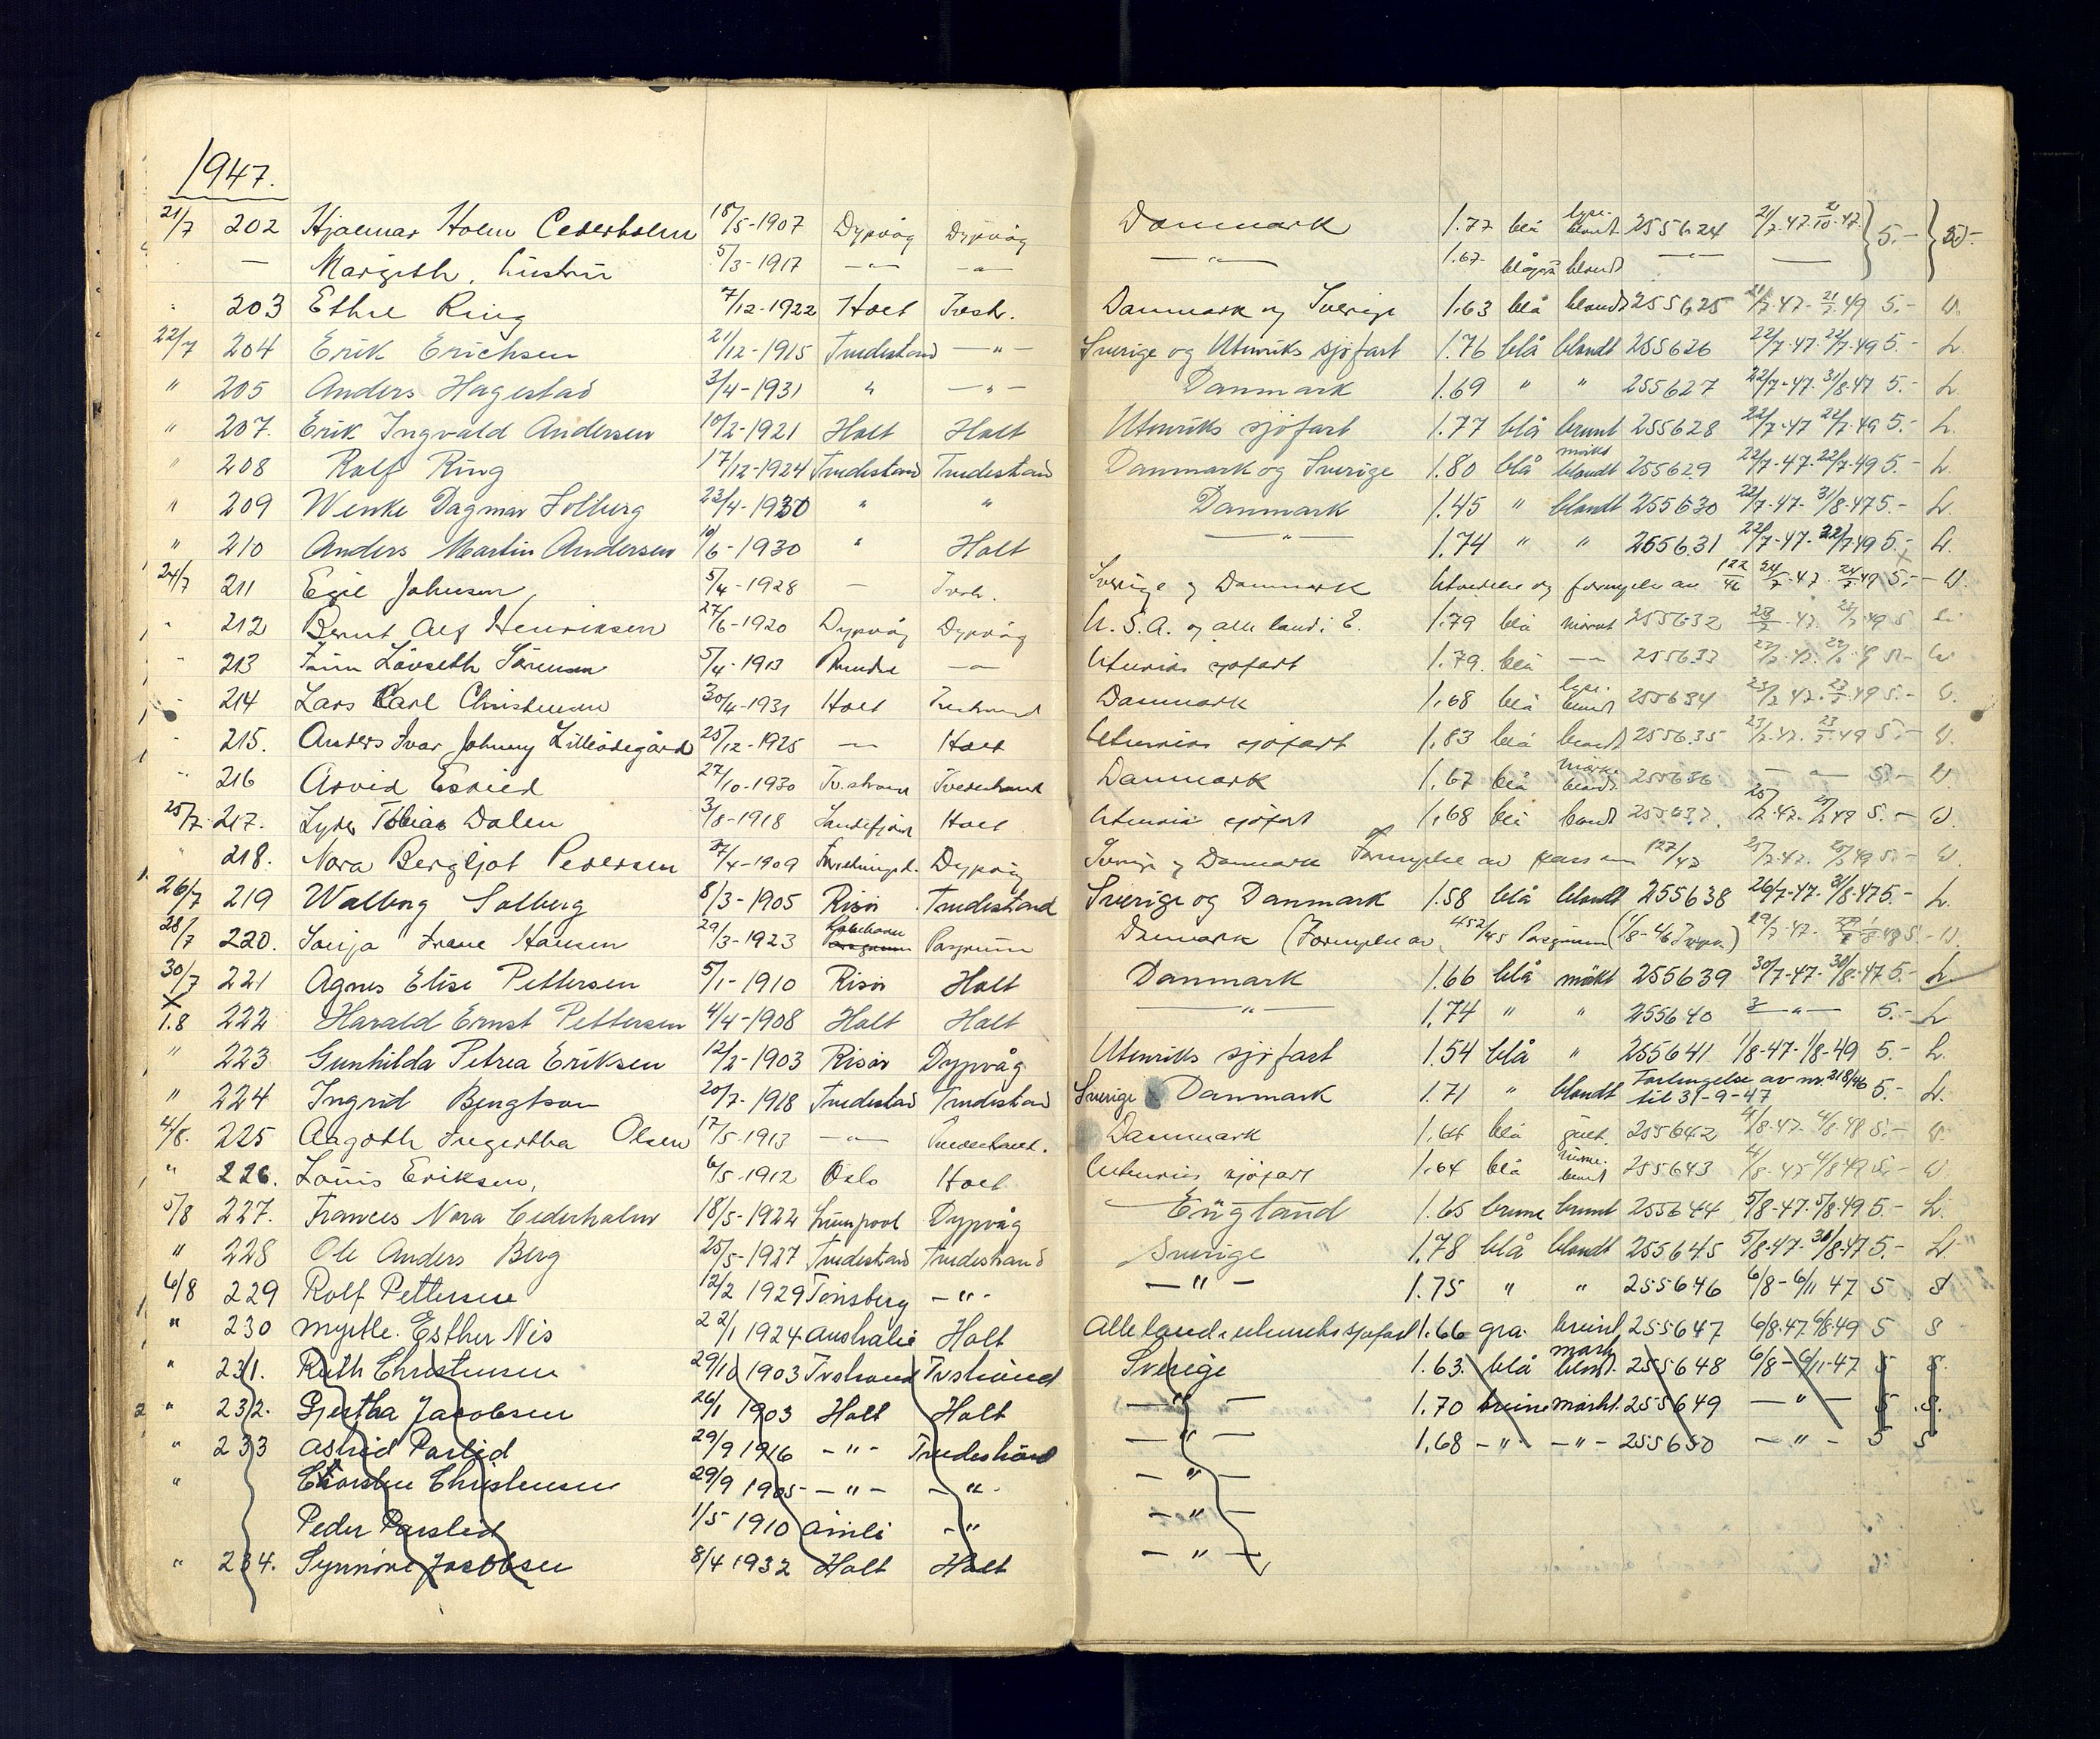 1947.
21/7 202 Hjalmar Holm Cederholm 18/5-1907 Dypvåg Dypvåg Danmark 1.77 blå lyse- blondt 255624 21/7.47. 21/10.47 5.-
— Margith, hustru 5/3-1917 —"— —"— —"— 1.67 blågrå blondt —"— —
203 Ethel Ring 7/12-1922 Holt Tvestr. Danmark og Sverige 1.63 blå blondt 255625 21/7-47- 21/7.49 5.- W.
22/7 204 Erik Erichsen 21/12-1915 Tvedestrand —"— Sverige og Utenriks sjøfart 1.76 blå blondt 255626 22/7-47- 22/7-49 5.- L.
" 205 Anders Hagestad 3/4-1931 " —"— Danmark 1.69 " " 255627 22/7-47- 31/8-47 5.- L.
" 207. Erik Ingvald Andersen 10/2-1921 Holt Holt Utenriks sjøfart 1.77 blå brunt 255628 22/7-47 22/7-49 5.- L.
" 208 Rolf Ring 17/12-1924 Tvedestrand Tvedestrand Danmark og Sverige 1.80 blå mørkt blondt 255629 22/7-47- 22/7-49 5.- L.
" 209 Wenke Dagmar Solberg 23/4-1930 " " Danmark 1.45 " blondt 255630 22/7-47- 31/8-47 5.- L.
" 210 Anders Martin Andersen /6-1930 " Holt —"— 1.74 " " 255631 22/7-47- 22/7-49 5.- L.
24/7 211 Egil Johnsen 5/4-1928 — Tvestr. Sverige og Danmark Utvidelse og fornyelse av 122/46 24/7.47. 24/7.49 5.- W.
" 212 Bernt Alf Henriksen 27/6-1920 Dypvåg Dypvåg U.S.A. og alle land i E. 1.79 blå mørkt 255632 49 5
" 213 Finn Løvseth Sørensen 5/4-1913 —"— Utenriks sjøfart 1.79. blå —"— 255633 5.- W
" 214 Lars Carl Christensen 30/4-1931 Holt Tvedestrand Danmark 1.68 blå lyse- blondt 255634 23/7 47. 23/7.49 5.- W.
" 215. Anders Ivar Johnny Lilleødegård 25/12-1925 — Holt Utenriks sjøfart 1.83 blå blondt 255635 23/7.47. 23/7.49 5.- W.
" 216 Arvid Eskild 27/10-1930 Tv.strand Tvedestrand Danmark 1.67 blå mørke- blondt 255636 — " — 5.- W
25/7 217. Lyder Tobias Dalen 3/8-1918 Sandefjord Holt Utenriks sjøfart 1.68 blå blondt 255637. 25/7.47. 25/7 49 5.- W.
" 218. Nora Bergljot Pedersen 27/4-1909 Dypvåg Sverige og Danmark Fornyelse av pass nr 127/47 25/7.47. 25/7 49 5.- W.
26/7 219 Walborg Solberg 8/3-1905 Risør Tvedestrand Sverige og Danmark 1.58 blå blondt 255638 26/7-47- 31/8-47 5.- L.
28/7 220. Sonja Irene Hansen 29/3-1923 Porsgrunn Porsgrunn Danmark (Fornyelse av 452/45 Porsgrunn 29/7-47- 5.- W.
30/7 221 Agnes Elise Pettersen 5/1-1910 Risør Holt Danmark 1.66 blå mørkt 255639 30/7-47- 30/8-47 5.- L
x 1.8 222 Harald Ernst Pettersen 4/4-1908 Holt Holt —"— 1.74 " " 255640 —"— 5.- L
" 223 Gunhilda Petrea Eriksen 12/2-1903 Risør Dypvåg Utenriks sjøfart 1.54 blå " 255641 1/8-47- 1/8-49 5.- L.
" 224 Ingrid Bengtson 20/7-1918 Tvedestrand Tvedestrand Sverige Danmark 1.71 " blondt Forlengelse av nr. 318/46 til 31-9-47 5.- L.
4/8. 225 Aagoth Ingertha Olsen 17/5-1913 —"— Tvedestrand. Danmark 1.66 blå gult. 255642 4/8-47- 4/8-48 5.- W.
" 226. Louis Eriksen, 6/5-1912 Oslo Holt Utenriks sjøfart 1.64 blå blondt 255643 4/8-47 4/8 49 5.- W
5/8 227. Frances Nora Cederholm 18/5-1922 Liverpool Dypvåg England 1.65 brune brunt 255644 5/8-47- 5/8-49 5.- L.
" 228 Ole Anders Berg 25/5-1927 Tvedestrand Tvedestrand Sverige 1.78 blå blondt 255645 5/8-47- 31/8-47 5.- L.
6/8 229 Rolf Pettersen 12/2 1929 Tønsberg —"— —"— 1.75 " " 255646 6/8-6/11 47 5 S
" 230 Myrtle. Esther Nis 22/1 1924 Australia Holt Alle land. utenriks sjøfart 1.66 grå. brunt 255647 6/8.47 6/8-49 5 S
" 231. Ruth Christensen 29/10 1903 Tvstrand Tvstrand Sverige 1.63. blå mørk blond. 255648 6/8-6/11-47 5 S.
" 232. Gjertha Jacobsen 26/1 1903 Holt Holt —"— 1.70 brune mørkt. 255649 —"— 5 S.
" 233 Astrid Parslid 29/9 1916 —"— Tvedestrand —"— 1.68 —"— —"— 255650 —"— 5 S
" Thorsten Christensen 29/9 1905 —"— —"— —"—
Peder Parslid 1/5 1910 Åmli —"— —"—
" 234. Synnøve Jacobsen 8/4 1932 Holt Holt —"—